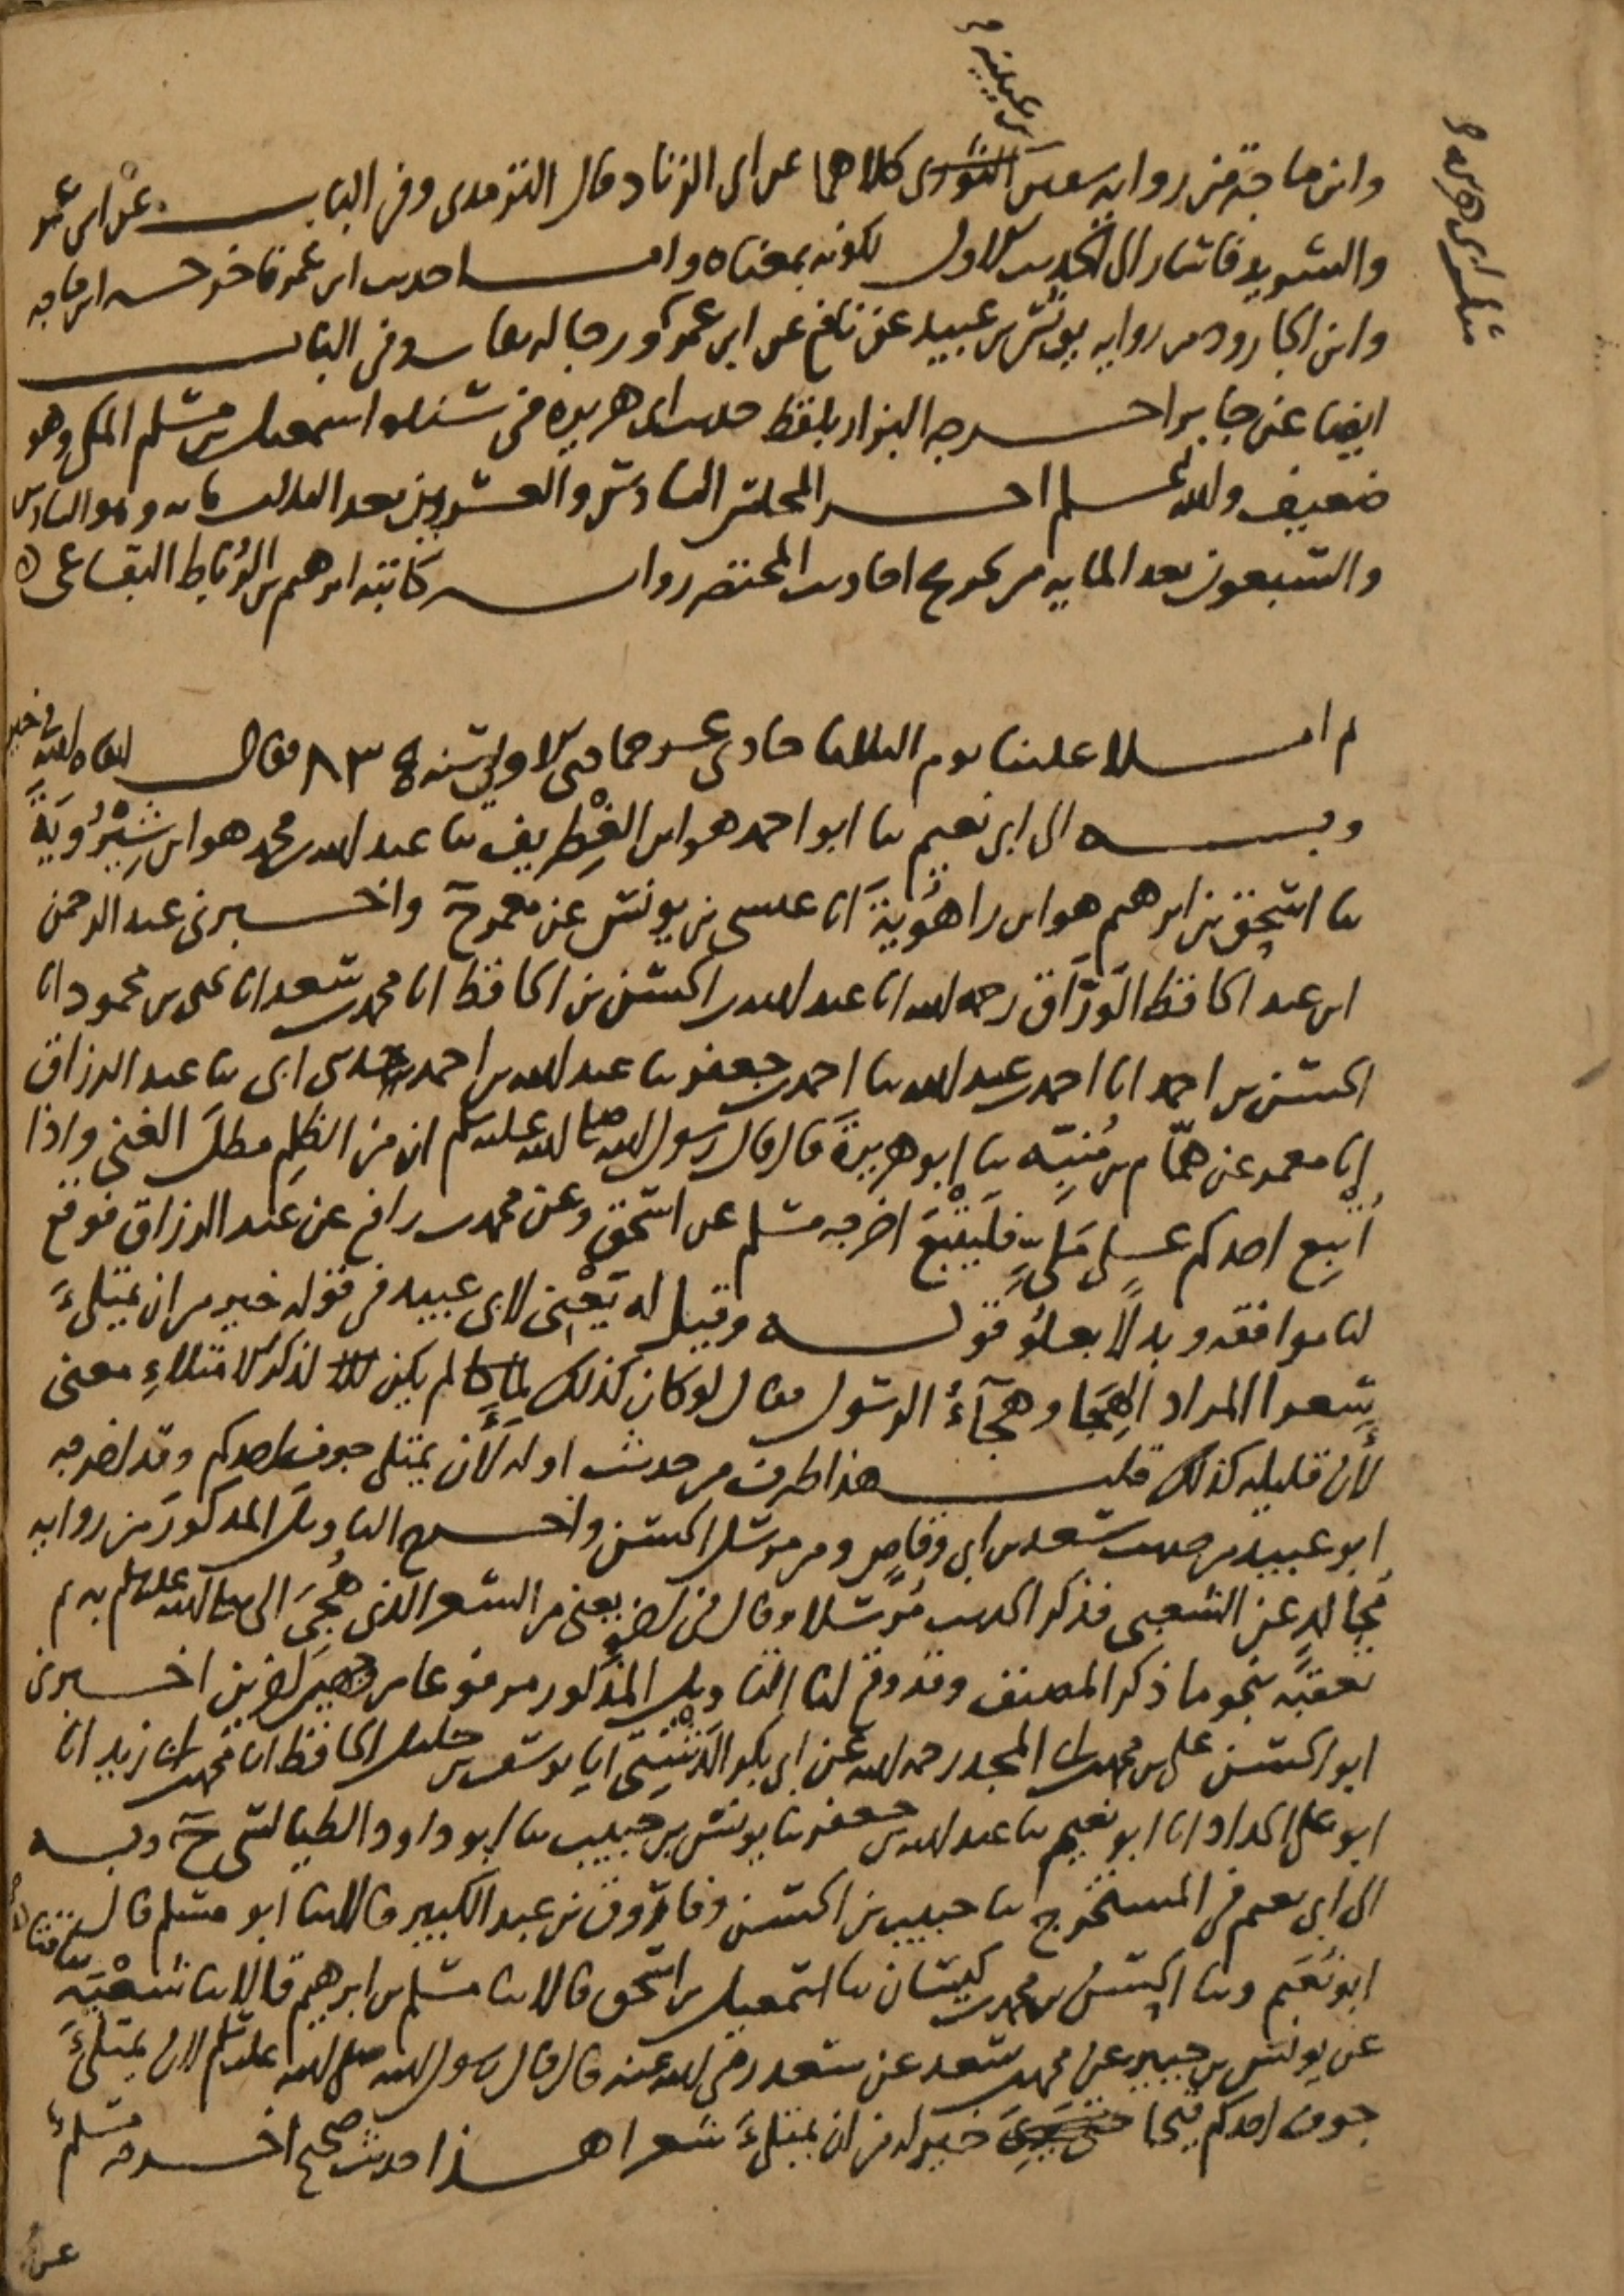 بن عيينة صح
وابن ماجة من رواية سفين الثوري كلاهما عن ابي الزناد قال الترمذي وفي الباب عن ابن عمر
والشريد فاشار الى الحديث الاول لكونه بمعناه واما حديث ابن عمر فاخرجه ابن ماجه
وابن الجارود من رواية يونس بن عبيد عن نافع عن ابن عمر ورجاله ثقات وفي الباب
ايضا عن جابر اخرجه البزار بلفظ حديث ابي هريرة في سنده اسمعيل بن مسلم المكي وهو
ضعيف والله اعلم اخر المجلس السادس والعشرين بعد الثلاث مائه وهو السادس
والسبعون بعد المايه من تخريج احاديث المختصر رواية كاتبه ابرهيم بن الرباط البقاعي
ثم املا علينا يوم الثلاثا حادي عشر جمادى الاولى سنة ٨٣٤ فقال ابقاه الله في خير
وبه الى ابي نعيم ثنا ابو احمد هو ابن الغطريف ثنا عبد الله بن محمد هو ابن شيرويه
ثنا اسحق بن ابرهيم هو ابن راهويه انا عيسى بن يونس عن معمر ح واخبرني عبد الرحمن
ابن عبد الحافظ الوراق رحمه الله انا عبد الله بن الحسن بن الحافظ انا محمد بن سعد انا يحيى بن محمود انا
الحسن بن احمد انا احمد بن عبد الله ثنا احمد بن جعفر ثنا عبد الله بن احمد حدثني ابي ثنا عبد الرزاق
انا معمر عن همام بن منبه ثنا ابو هريرة قال قال رسول الله صلى الله عليه وسلم ان من الظلم مطل الغني واذا
اتبع احدكم على ملي فليتبع اخرجه مسلم عن اسحق وعن محمد بن رافع عن عبد الرزاق فوقع
لنا موافقه وبدلا بعلو قوله وقيل له يعني لابي عبيد في قوله خير من ان يمتلئ
شعرا المراد الهجا وهجآء الرسول فقال لو كان كذلك لم يكن لذكر الامتلاءِ معنى
لأن قليله كذلك قلت هذا طرف من حديث اوله لأن يمتلي جوف احدكم وقد اخرجه
ابو عبيد من حديث سعد بن ابي وقاص ومن مرسل الحسن واخرج التاويل المذكور من رواية
مجالد عن الشعبي فذكر الحديث مرسلا وقال في اخره يعني من الشعر الذي هُجي النبي صلى الله عليه وسلم به ثم
تعقبه بنحو ما ذكر المصنف وقد وقع لنا التاويل المذكور مرفوعا من وجهين اخرين اخبرني
ابو الحسن علي بن محمد بن ابي المجد رحمه الله عن ابي بكر الدشتي انا يوسف بن خليل الحافظ انا محمد بن ابي زيد انا
ابو علي الحداد انا ابو نعيم ثنا عبد الله بن جعفر ثنا يونس بن حبيب ثنا ابو داود الطيالسي ح وبه
الى ابي نعيم في المستخرج ثنا حبيب بن الحسن وفاروق بن عبد الكبير قالا ثنا ابو مسلم قال
ابو نعيم وثنا الحسن بن محمد بن كيسان ثنا اسمعيل بن اسحق قالا ثنا مسلم بن ابرهيم قالا ثنا شعبة
عن يونس بن جبير عن محمد بن سعد عن سعد رضي الله عنه قال قال رسول الله صلى الله عليه وسلم لان يمتلئ
جوف احدكم قيحا خير له من ان يمتلئ شعرا هذا حديث صحيح اخرجه مسلم
عن